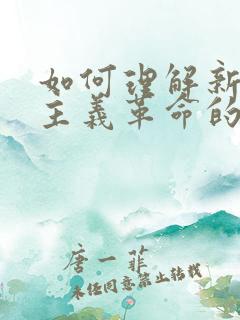 如何理解新
主义革命的
唐一菲
未经同意禁止转载